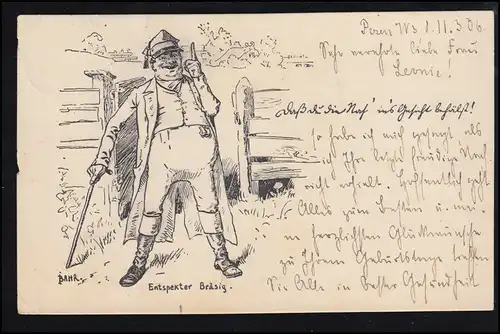 1.11.306
Sehr verehrte liebe Frau
Leonie!
Daß du die Nas' in's Gesicht behülst!
so habe ich mich gesagt als
ich Ihr letzte freudige
nicht erhielt. Hoffentlich geht
Alles zum Besten u. mei-
ne herzlichsten Glückwünsche
zu Ihrem Geburtstage treffen
Sie Alle in bester Gesundheit
BAHR.
Entspekter Bräsig.